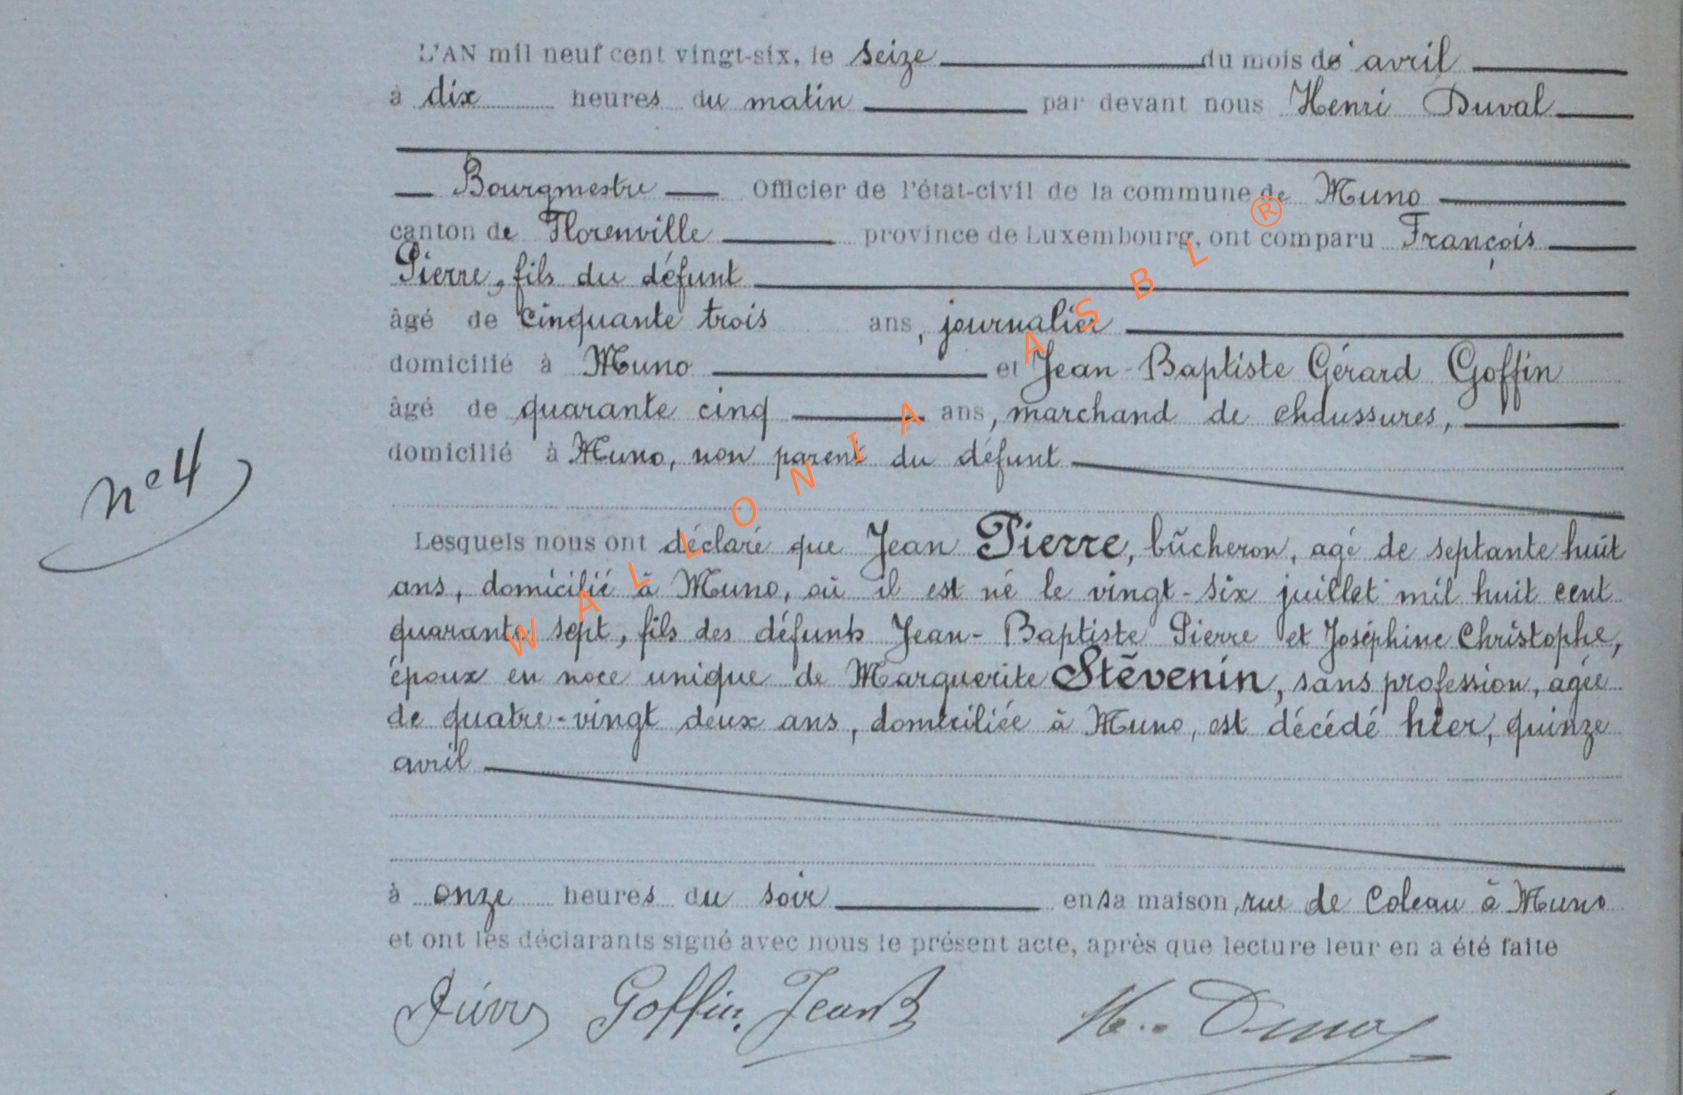 L'AN mil neuf cent vingt-six, le seize du mois de avril
à dix heures du matin par devant nous Henri Duval
Bourgmestre Officier de l'état-civil de la commune de Muno
canton de Florenville province de Luxembourg, ont comparu François
Pierre, fils du défunt
âgé de cinquante trois ans, journalier
domicilié à Muno et Jean-Baptiste Gérard Goffin
âgé de quarante cinq ans, marchand de chaussures,
domicilié à Muno, non parent du défunt
nº 4
Lesquels nous ont déclaré que Jean Pierre, bûcheron, agé de septante huit
ans, domicilié à Muno, où il est né le vingt-six juillet mil huit cent
quarante sept, fils des défunts Jean-Baptiste Pierre et Joséphine Christophe,
époux en noce unique de Marguerite Stévenin, sans profession, agée
de quatre-vingt deux ans, domiciliée à Muno, est décédé hier, quinze
avril
à onze heures du soir en sa maison, rue de Coleau à Muno
et ont les déclarants signé avec nous le présent acte, après que lecture leur en a été faite
Pierre Goffin JeanB H. Duval
WALLONIA ASBL ®